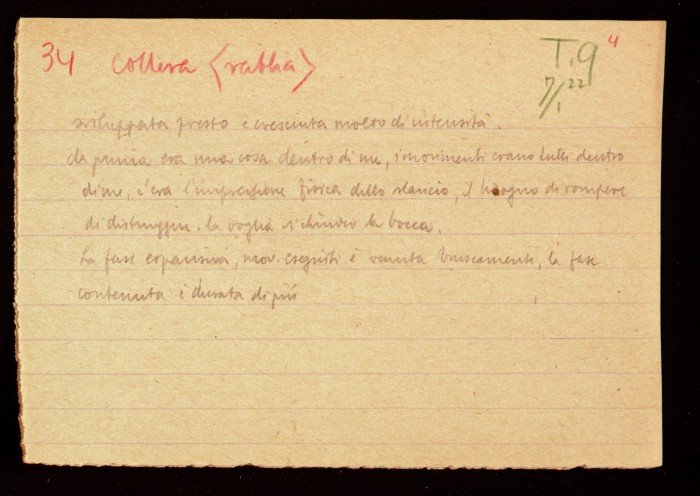 34 collera <rabbia> T.9 4
7/1 22
sviluppata presto è cresciuta molto di intensità.
da prima era una cosa dentro di me, i movimenti erano tutti dentro
di me, c'era l'impressione fisica dello slancio, il bisogno di rompere
di distruggere. la voglia di chiuder la bocca.
La fase espansiva, mov. eseguiti è venuta bruscamente, la fase
contenuta è durata di più